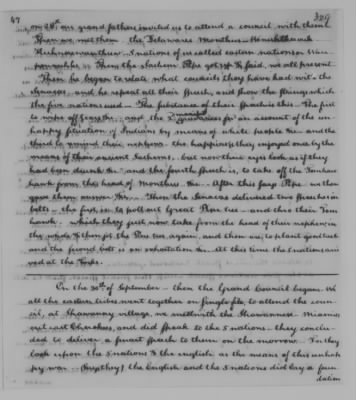 47
329
on 28th our grand fathers invited us to attend a council with them
Then we met them the Delawares Monthees
5 nations or we called eastern nations or
Then the Sachem Pipe got up & said, we all present
Then he began to relate what councils they have had with the
Senacas, and he repeat all their speech, and show the strings which
the five nations used The substance of their speech is this The first
to wipe off tears &c. and the 2 on account of the un-
happy situation of Indians by means of white people &c and the
third to remind their nephews the happiness they enjoyed once by the
means of their ancient Sachems, but now their eyes look as if they
had been drunk &c and the fourth speech is, to take off the Tomha
hawk from this head of Monthees &c. After this says Pipe we then
gave them answer &c. Then the Senacas delivered two speeches in
belts the first is, to pull out Great Pine tree and this their Tom
hawk, which they just now take from the head of their nephew in
the & then set the Pine tree again and then we, to plant good
and the second belt is an exhortation &c. At this time the 5 nations arri
ved at the
On the 30th of September then the Grand Council began. We
all the eastern tribes went together on single file, to attend the coun-
cil, at Shawanoy village, we met with the Shawannese Miamies
Cherokees, and did speak to the 5 nations they conclu-
ded to deliver a smart speech to them on the morrow For they
look upon the 5 nations & the english as the means of this unhap
py war (they) the English and the 5 nations did lay a foun
dation